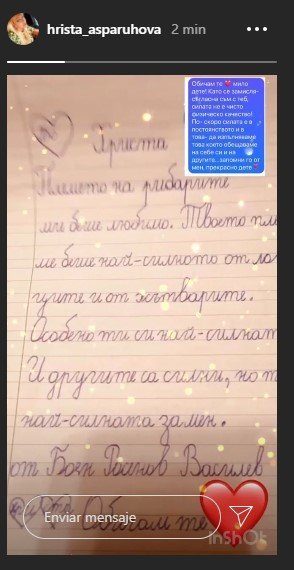 hrista_asparuhova 2 min
Обичам те ❤️ мило
дете! Като се замисля-
съгласна съм с теб,
силата не е чисто
физическо качество!
По- скоро силата е в
постоянството и в
това- да изпълняваме
това което обещаваме
на себе си и на
другите...запомни го от
мен, прекрасно дете
Христа
Племето на рибарите
ми беше любимо. Твоето пле
ме беше най-силното от ло
вците и от жътварите.
Особено ти си най-силнат
И другите са силни, но т
най-силната за мен.
от Боян Росенов Василев
Обичам те
Enviar mensaje
InShOt